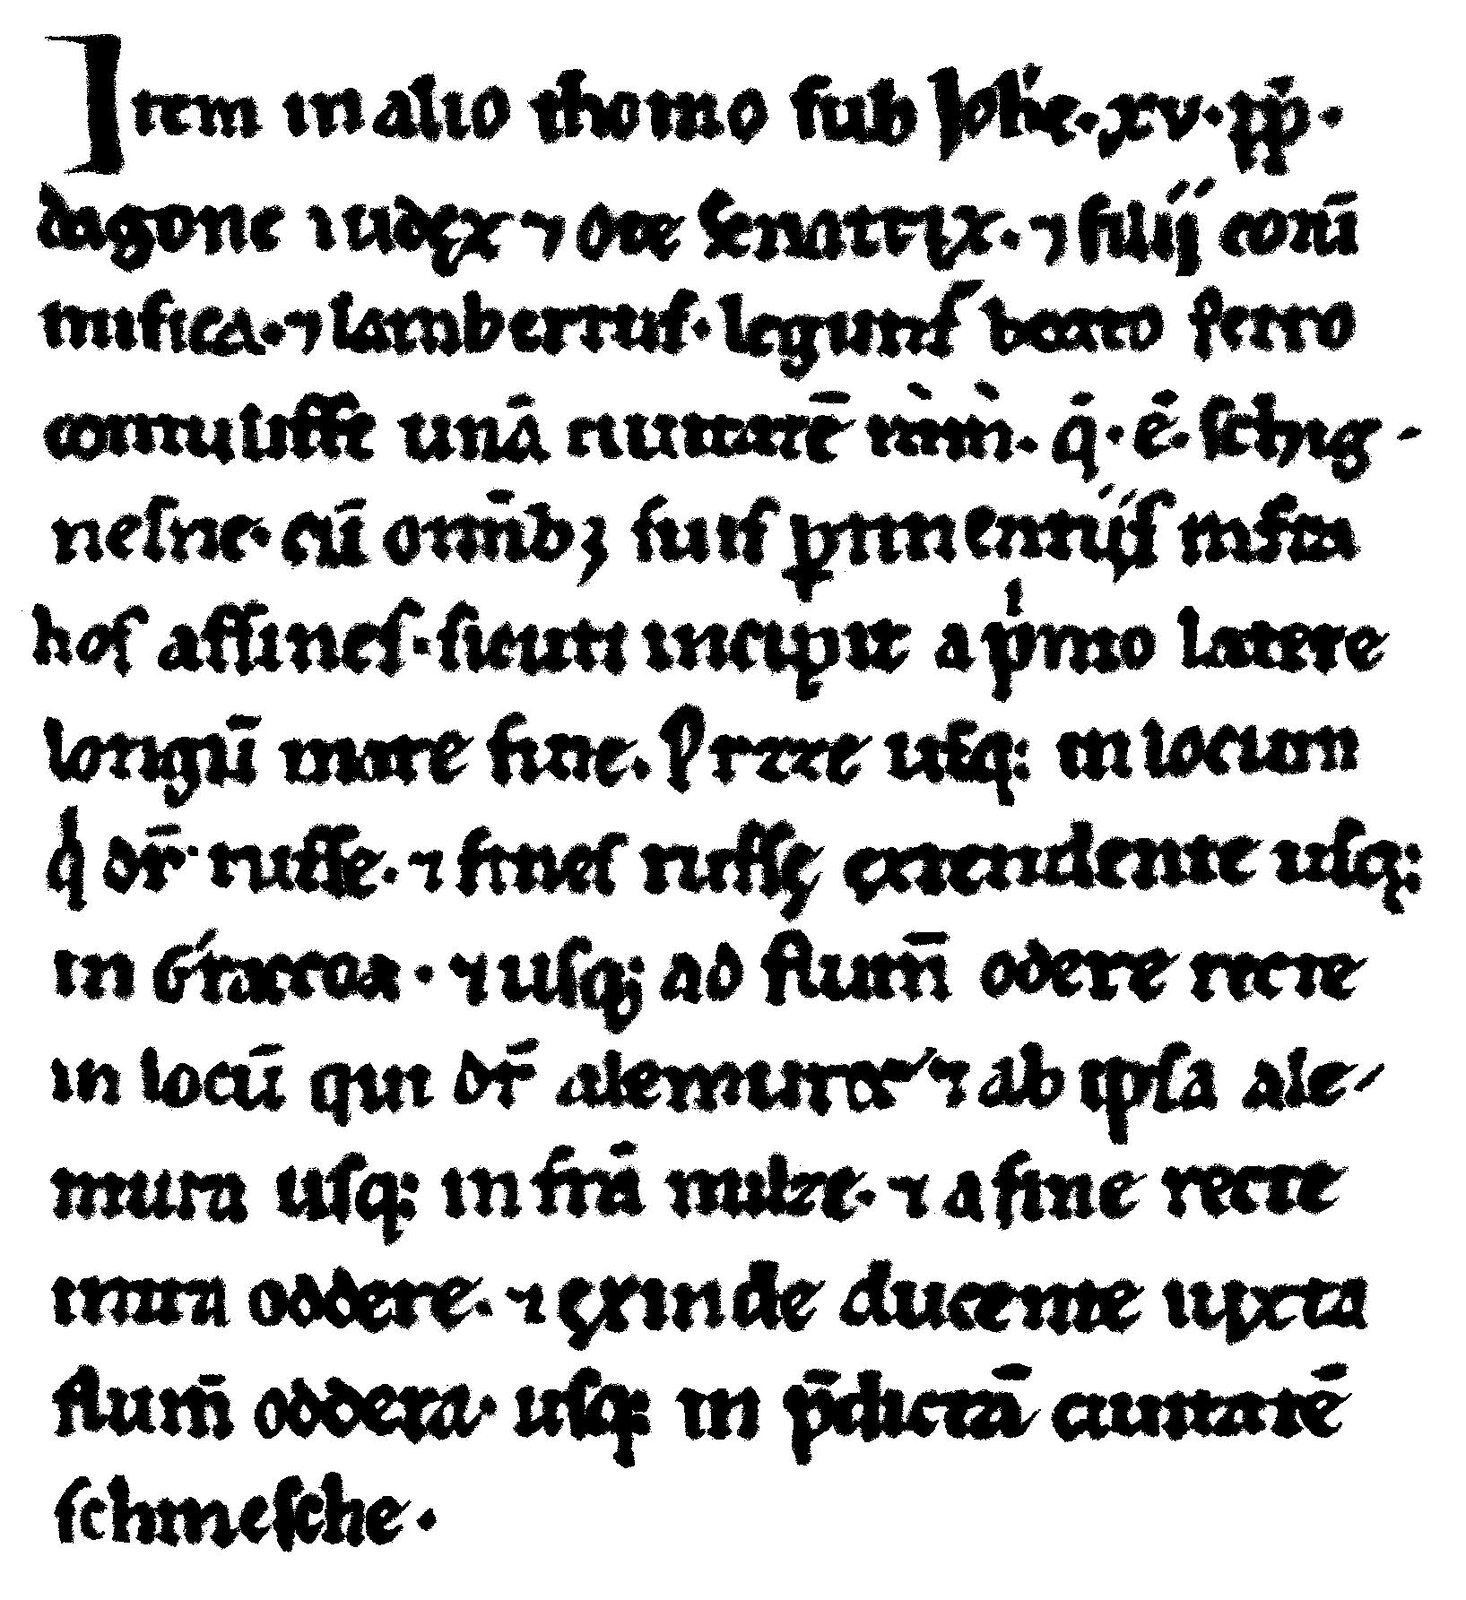 Item in alio thomo sub Joħe·xv·pp̄·
dagone iudęx ⁊ Ote senatrix·⁊ filij com̄
misica·⁊ lambertus·legunt᷑ beato petro
contulisse unā ciuitatē in in·q̄·ē·schig-
nesne·cū omīb; suis ꝑtinentijs infra
hos affines·sicuti incipit a pͥmo latere
longū mare fine·Przze usq: in locum
qͥ dr̄ russe·⁊ fines russę extendente usq:
in Graccoa·⁊ usq; ad flum̄ odere recte
in locū qui dr̄ alemura ⁊ ab ipsa ale-
mura usq: in trā milze·⁊ a fine recte
intra oddere·⁊ ęxinde ducente iuxta
flum̄ oddera·usq: in p̄dictā ciuitatē
schinesche·